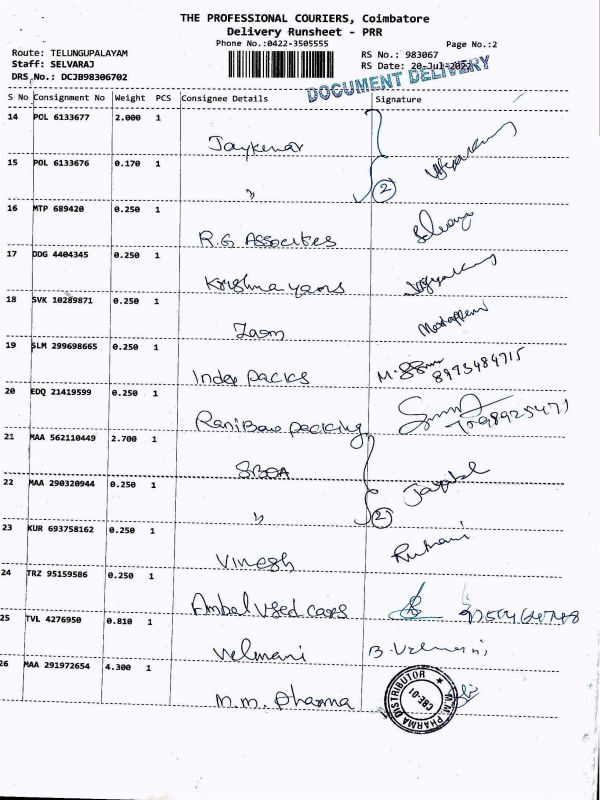 THE PROFESSIONAL COURIERS, Coimbatore
Delivery Runsheet - PRR
Phone No.:0422-3505555
Page No.:2
Route: TELUNGUPALAYAM
Staff: SELVARAJ
DRS No.: DCJB98306702
RS No.: 983067
RS Date: 20-Jul-2022
DOCUMENT DELIVERY
S No Consignment No Weight PCS Consignee Details Signature
14 POL 6133677 2.000 1
15 POL 6133676 0.170 1
" 2
16 MTP 689420 0.250 1
R.G. Associates
17 DDG 4404345 0.250 1
Krishna yarns
18 SVK 10289871 0.250 1
19 SLM 299698665 0.250 1
Index Packs M. 8973484715
20 EDQ 21419599 0.250 1
packing
21 MAA 562110449 2.700 1
22 MAA 290320944 0.250 1
" 2
23 KUR 693758162 0.250 1
Vinesh
24 TRZ 95159586 0.250 1
Ambal Used cars
25 TVL 4276950 0.810 1
Velmani B. Velmani
26 MAA 291972654 4.300 1
M.M. Pharma
M.M. PHARMA DISTRIBUTOR
CBE-01